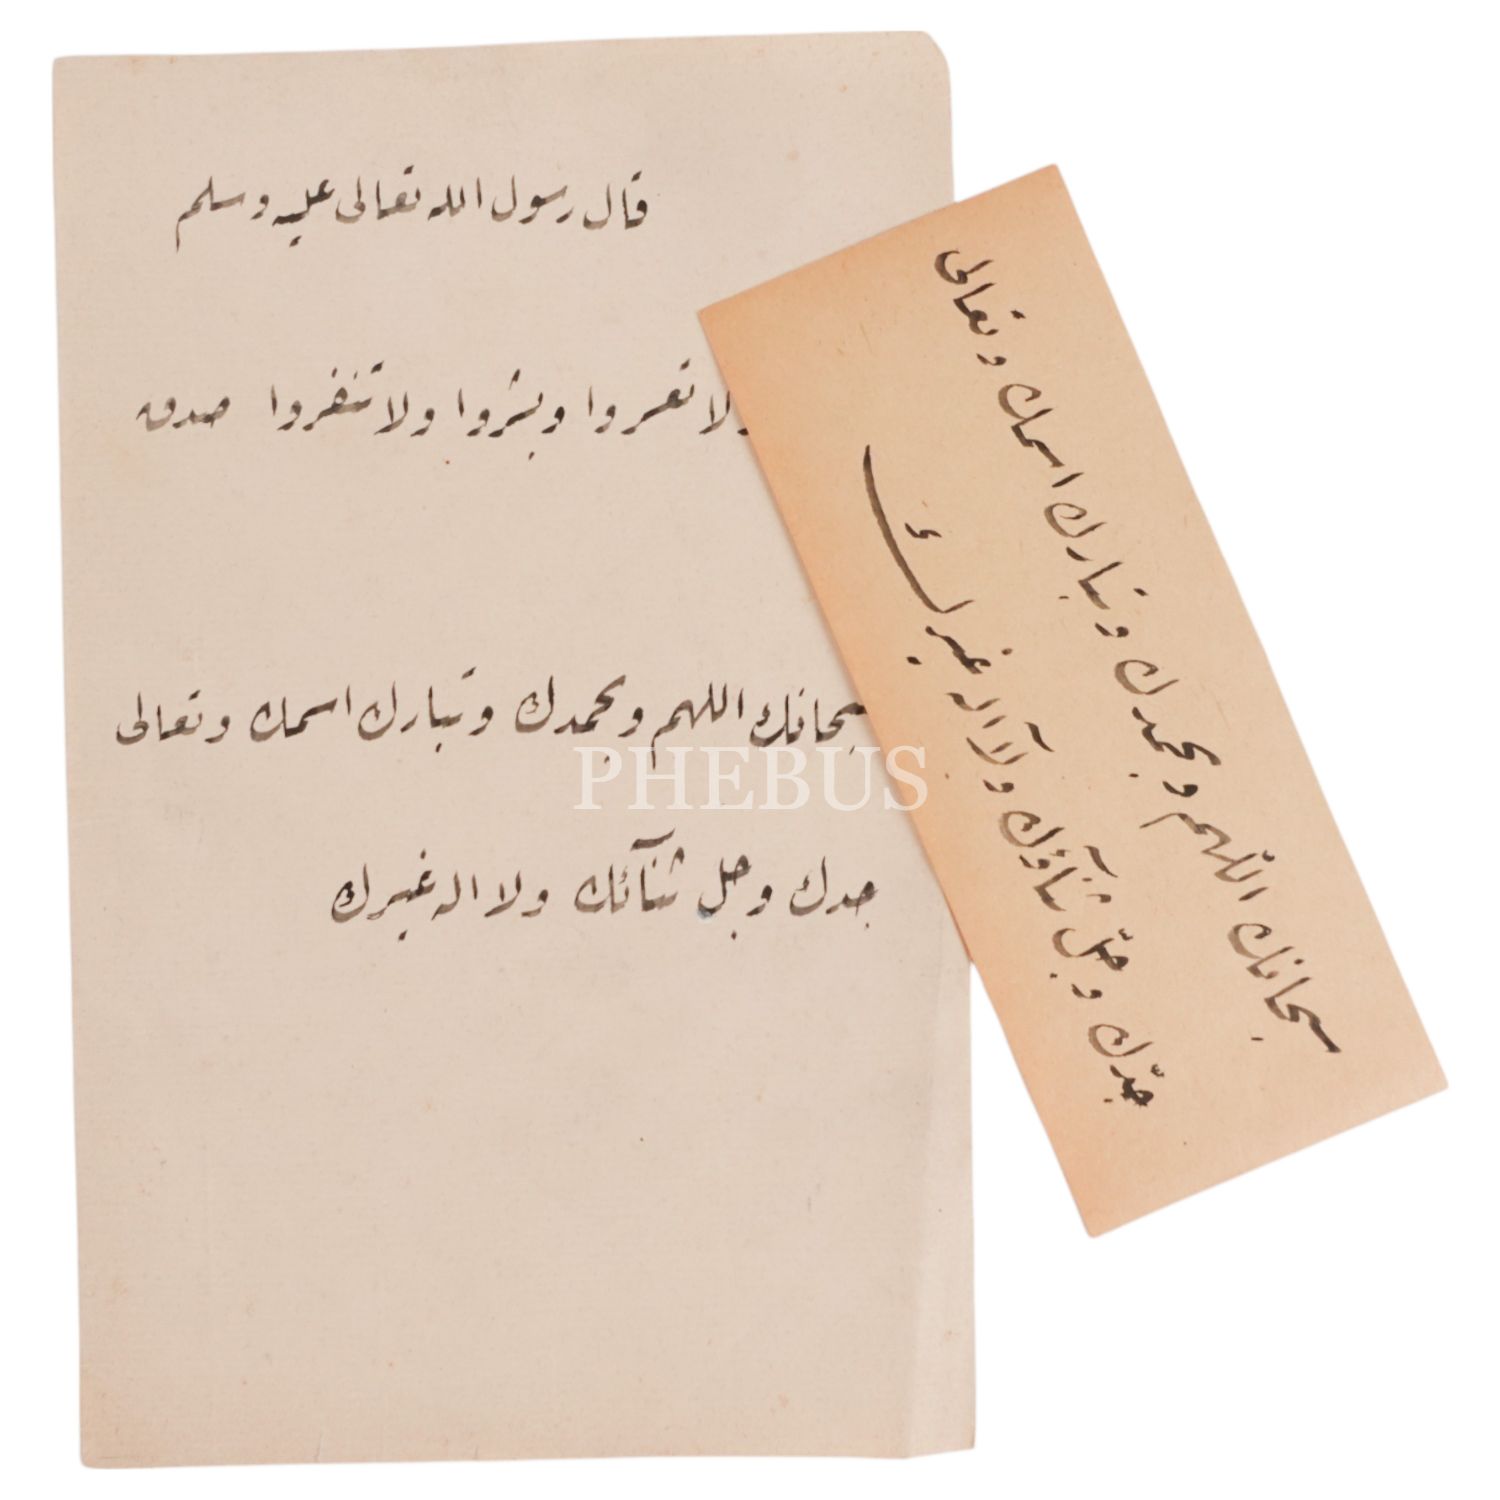 قال رسول الله تعالى عليه وسلم
ولا تعسروا وبشروا ولا تنفروا صدق
سبحانك اللهم وبحمدك وتبارك اسمك وتعالى
جدك وجل ثنآئك ولا اله غيرك
سبحانك اللّهم وبحمدك وتبارك اسمك وتعالى
جدّك وجلّ ثنآؤك ولآ اله غيرك
PHEBUS